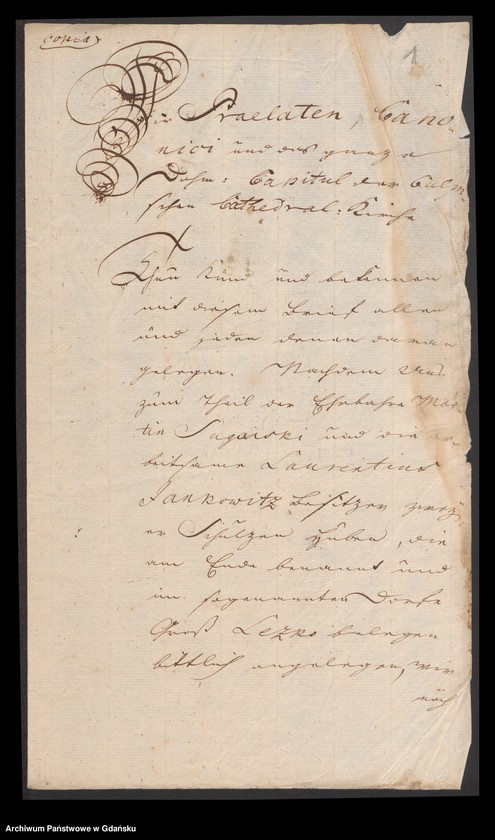 copia
1
Wir Praelaten, Cano-
nici und das ganze
Dohm: Capitul der Culm-
schen Cathedral: Kirche
Thun Kund und bekennen
mit diesem Brief allen
und jeden denen daran
gelegen. Nachdem Uns
zum Theil der Ehrbahre Mar-
tin Sugaiski und die ar-
beitsame Laurentius
Jankowitz besitzer zwey-
er Schultzen Huben, die
am Ende benannt und
im sogenannten Dorfe
Groß Lezno belegen
bittlich angelegen, wir
noch
Archiwum Państwowe w Gdańsku